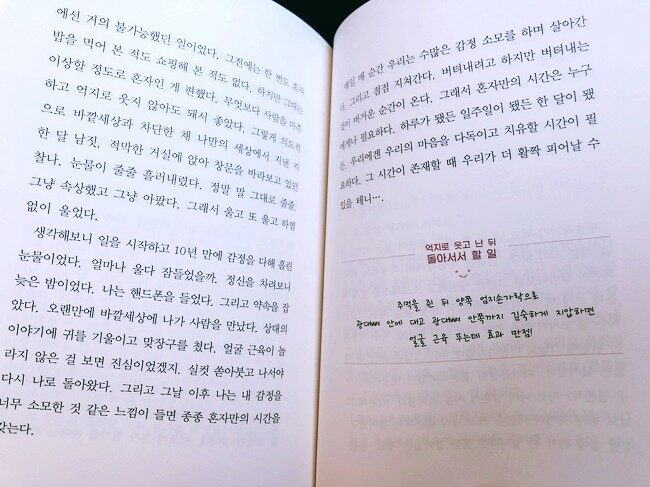 에선 거의 불가능했던 일이었다. 그전에는 한 번도 혼자
밥을 먹어 본 적도 쇼핑해 본 적도 없다. 하지만 그때는
이상할 정도로 혼자인 게 편했다. 무엇보다 사람을 마주
하고 억지로 웃지 않아도 돼서 좋았다. 그렇게 의도적
으로 바깥세상과 차단한 채 나만의 세상에서 지낸 지
한 달 남짓, 적막한 거실에 앉아 창문을 바라보고 있던
찰나, 눈물이 줄줄 흘러내렸다. 정말 말 그대로 줄줄.
그냥 속상했고 그냥 아팠다. 그래서 울고 또 울고 하염
없이 울었다.
생각해보니 일을 시작하고 10년 만에 감정을 다해 흘린
눈물이었다. 얼마나 울다 잠들었을까. 정신을 차려보니
늦은 밤이었다. 나는 핸드폰을 들었다. 그리고 약속을 잡
았다. 오랜만에 바깥세상에 나가 사람을 만났다. 상대의
이야기에 귀를 기울이고 맞장구를 쳤다. 얼굴 근육이 놀
라지 않은 걸 보면 진심이었겠지. 실컷 쏟아붓고 나서야
다시 나로 돌아왔다. 그리고 그날 이후 나는 내 감정을
너무 소모한 것 같은 느낌이 들면 종종 혼자만의 시간을
갖는다.
매일 매 순간 우리는 수많은 감정 소모를 하며 살아간
다. 그리고 점점 지쳐간다. 버텨내려고 하지만 버텨내는
것이 버거운 순간이 온다. 그래서 혼자만의 시간은 누구
에게나 필요하다. 하루가 됐든 일주일이 됐든 한 달이 됐
든, 우리에겐 우리의 마음을 다독이고 치유할 시간이 필
요하다. 그 시간이 존재할 때 우리가 더 활짝 피어날 수
있을 테니….
억지로 웃고 난 뒤
돌아서서 할 일
주먹을 쥔 뒤 양쪽 엄지손가락으로
광대뼈 안에 대고 광대뼈 안쪽까지 깊숙하게 지압하면
얼굴 근육 푸는데 효과 만점!